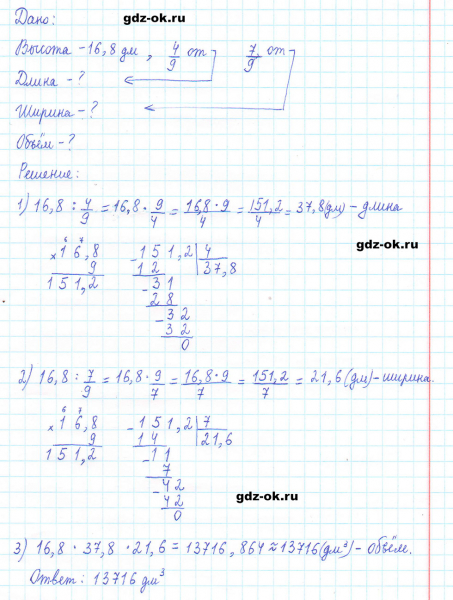 Дано:
gdz-ok.ru
Высота - 16,8 дм, 4/9 от 7/9 от
Длина - ?
Ширина - ?
Объём - ?
Решение:
1) 16,8 : 4/9 = 16,8 · 9/4 = 16,8 · 9/4 = 151,2/4 = 37,8 (дм) - длина
gdz-ok.ru
6 7
× 16,8 - 151,2 | 4
9 12 37,8
151,2 - 31
28
- 32
32
0
gdz-ok.ru
2) 16,8 : 7/9 = 16,8 · 9/7 = 16,8 · 9/7 = 151,2/7 = 21,6 (дм) - ширина.
6 7
× 16,8 - 151,2 | 7
9 14 21,6
151,2 - 11
7
- 42
42
0
gdz-ok.ru
3) 16,8 · 37,8 · 21,6 = 13716,864 ≈ 13716 (дм³) - объём.
Ответ: 13716 дм³
gdz-ok.ru